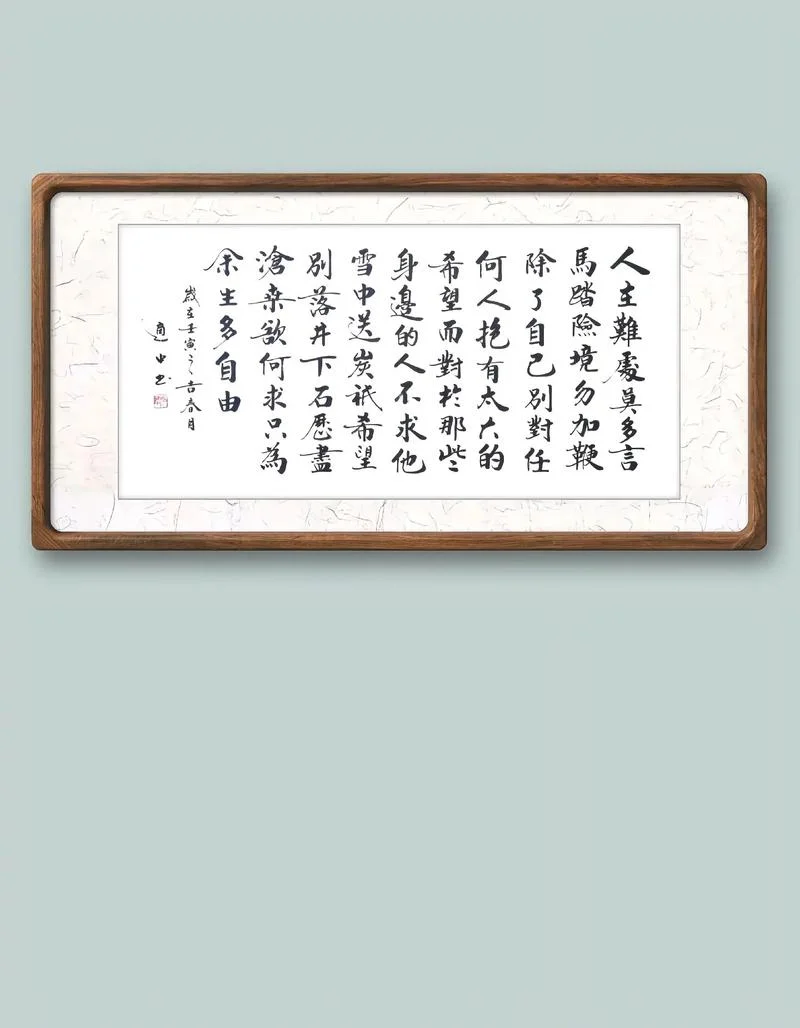 人在難處莫多言
馬踏險境勿加鞭
除了自己別對任
何人抱有太大的
希望而對於那些
身邊的人不求他
雪中送炭祇希望
別落井下石歷盡
滄桑欲何求只為
余生多自由
歲在壬寅之吉春月
適中书